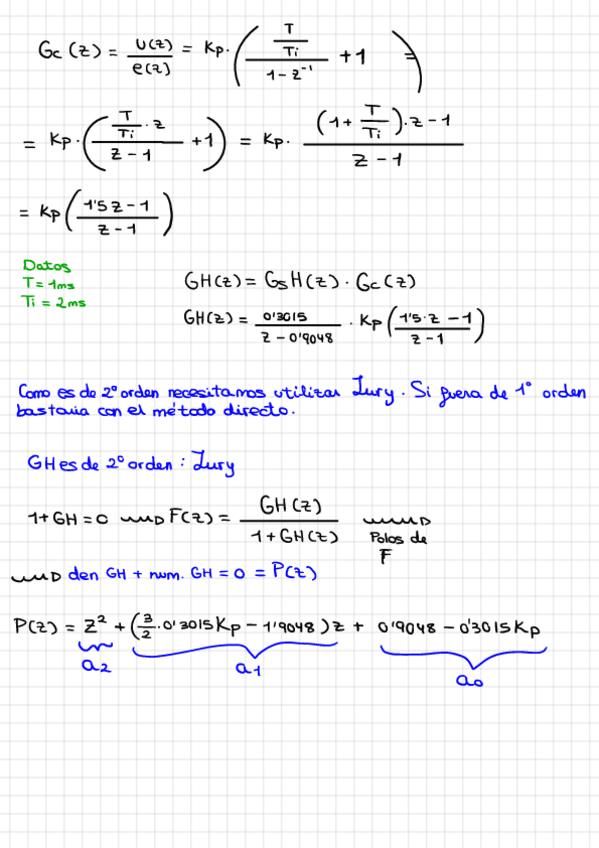 Gc (z) = U(z)/e(z) = Kp· ( (T/Ti)/(1-z⁻¹) + 1 ) =
= Kp· ( (T/Ti · z)/(z-1) + 1 ) = Kp· ((1+ T/Ti)·z-1)/(z-1)
= Kp ( (1'5z-1)/(z-1) )
Datos
T= 1ms
Ti = 2ms
GH(z) = GsH(z) · Gc(z)
GH(z) = 0'3015/(z-0'9048) · Kp ( (1'5·z-1)/(z-1) )
Como es de 2º orden necesitamos utilizar Jury. Si fuera de 1º orden
bastaria con el método directo.
GH es de 2º orden : Jury
1+GH=0 F(z) = GH(z)/(1+GH(z)) Polos de F
den GH + num. GH = 0 = P(z)
P(z) = z² + (3/2 · 0'3015Kp - 1'9048)z + 0'9048 - 0'3015Kp
a2 a1 a0